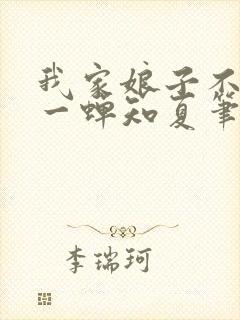 我家娘子不
一蝉知夏筆
李瑞珂